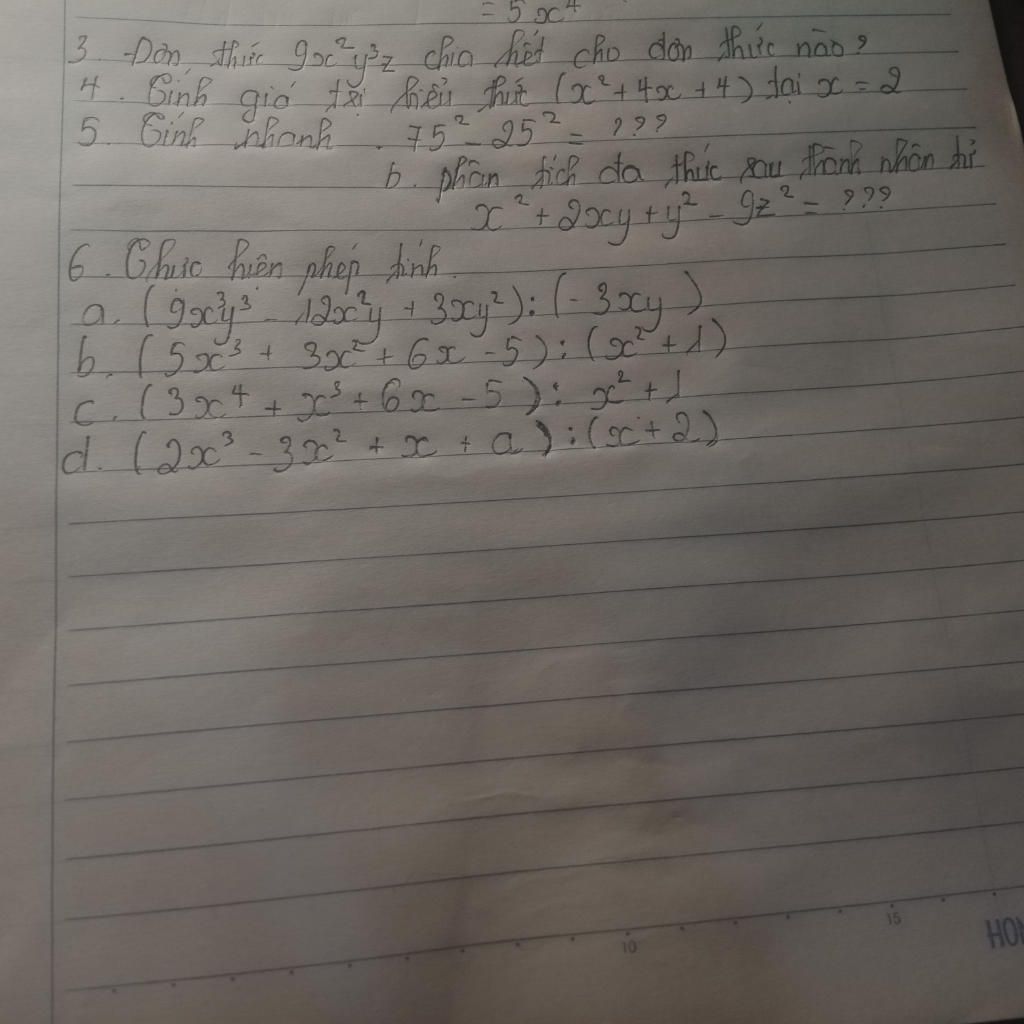 = 5x⁴
3. Đơn thức 9x²y³z chia hết cho đơn thức nào?
4. Tính giá trị biểu thức (x² + 4x + 4) tại x = 2
5. Tính nhanh. 75² - 25² = ???
b. phân tích đa thức sau thành nhân tử
x² + 2xy + y² - 9z² = ???
6. Thực hiện phép tính.
a. (9x³y³ - 12x²y + 3xy²) : (-3xy)
b. (5x³ + 3x² + 6x - 5) : (x² + 1)
c. (3x⁴ + x³ + 6x - 5) : x² + 1
d. (2x³ - 3x² + x + a) : (x + 2)
10 15
HON